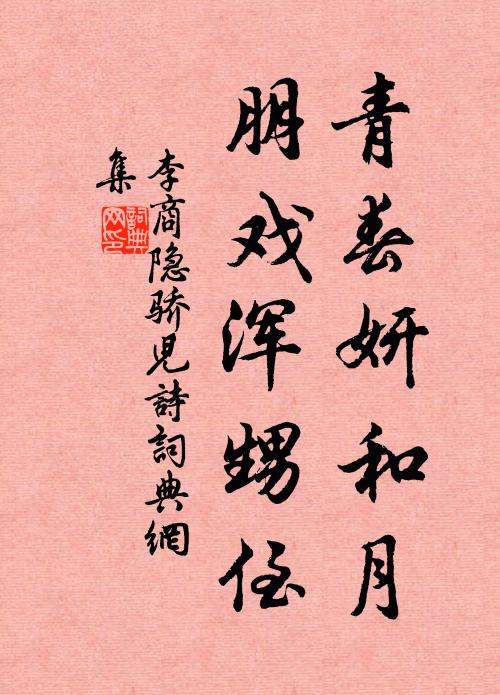 青春妍和月
朋戏浑甥侄
李商隐骄儿詩詞典網
集
詞典网印